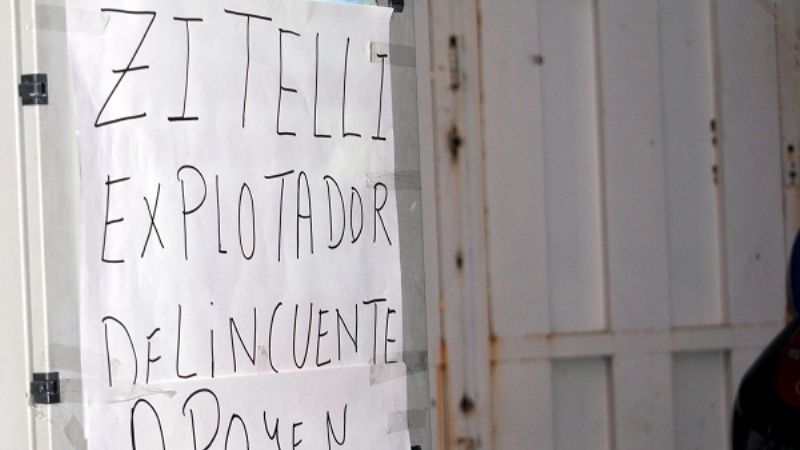 ZITELLI
EXPLOTADOR
DELiNCUENTE
APOYEN